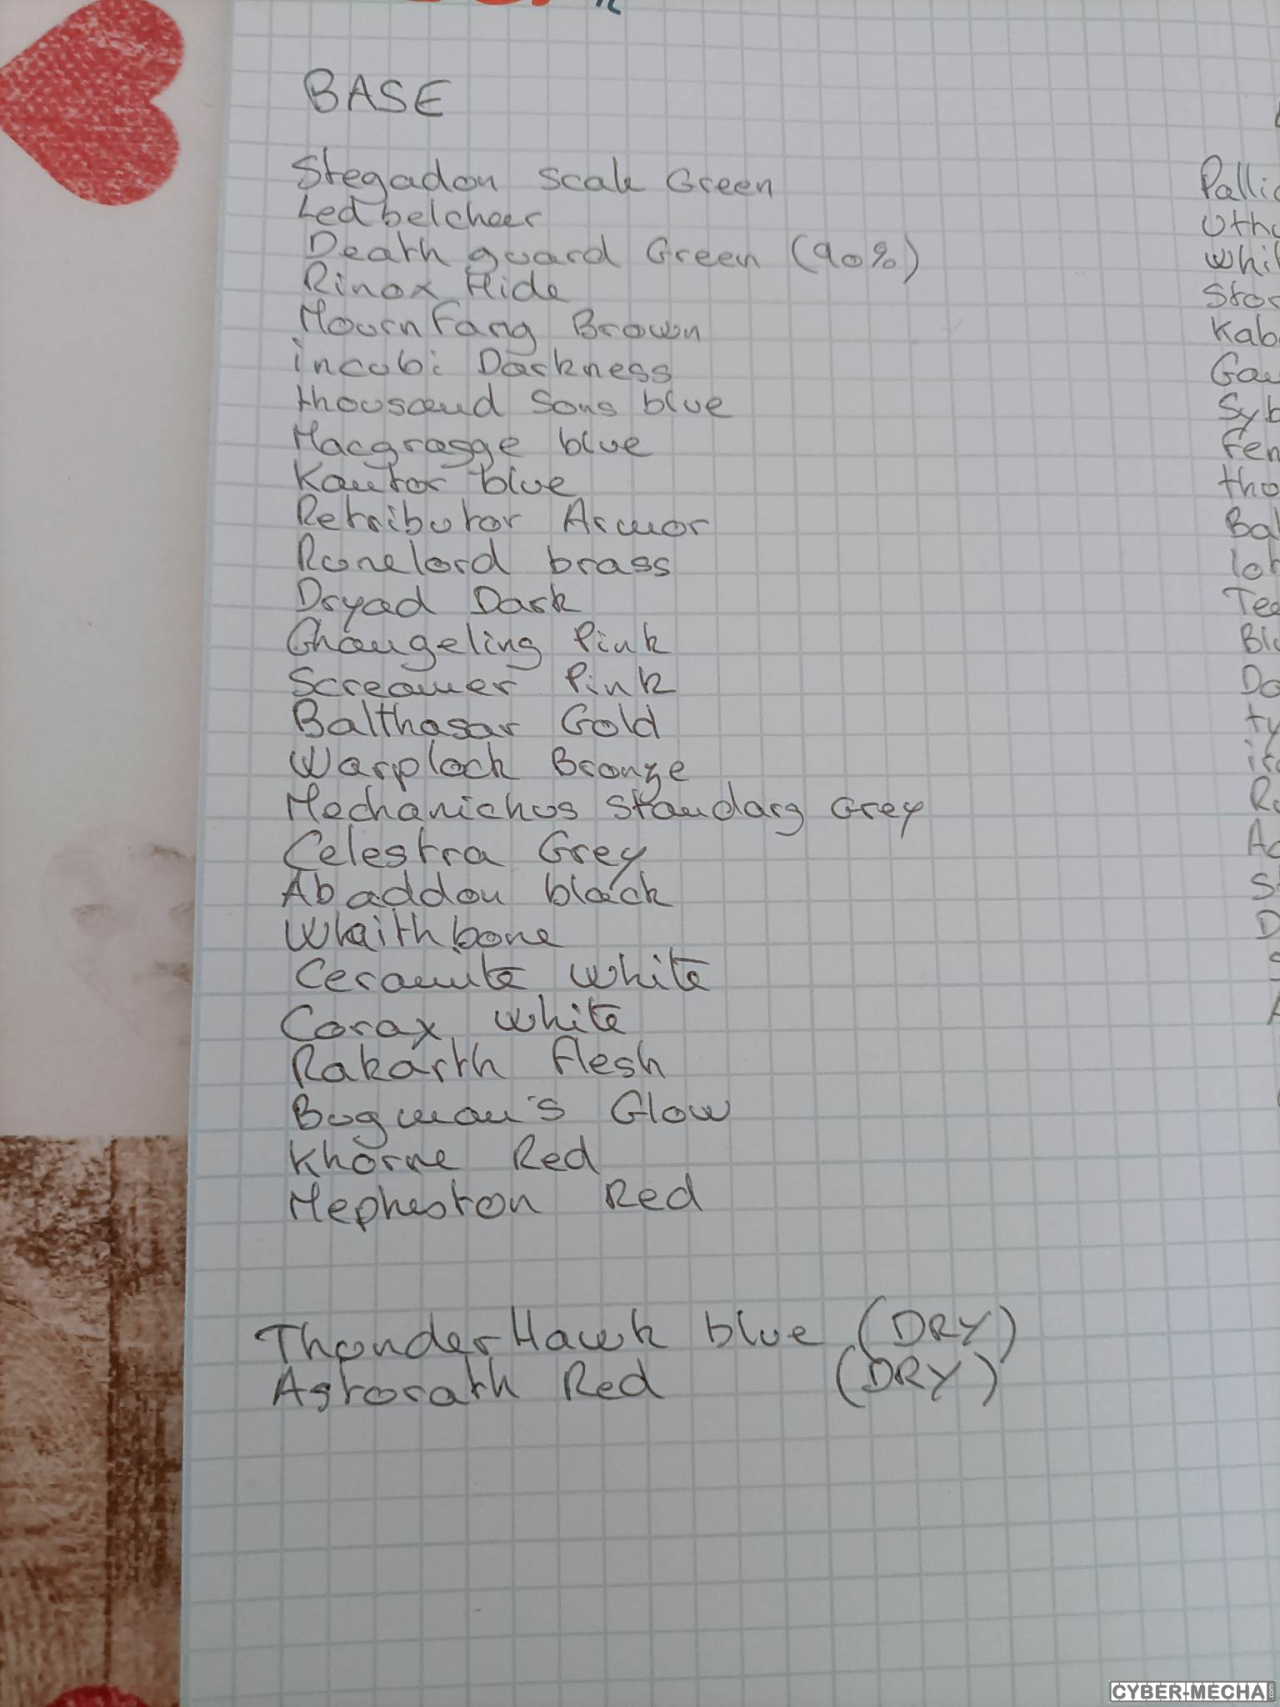 BASE
Stegadon Scale Green
Ledbelcher
Death guard Green (90%)
Rinox Hide
Mournfang Brown
incubi Darkness
thousand Sons blue
Macgragge blue
Kantor blue
Retributor Armor
Runelord brass
Dryad Dark
Changeling Pink
Screamer Pink
Balthasar Gold
Warplock Bronze
Mechanichus Standarg Grey
Celestra Grey
Abaddon black
Wraithbone
Ceramite White
Corax White
Rakarth Flesh
Bugman's Glow
Khorne Red
Mepheston Red
ThunderHawk blue (DRY)
Astorath Red (DRY)
Pallid
Utho
Whi
Stor
Kab
Gau
Syb
Fen
tho
Bal
lot
Tee
Blo
Da
ty
CYBER-MECHA.com